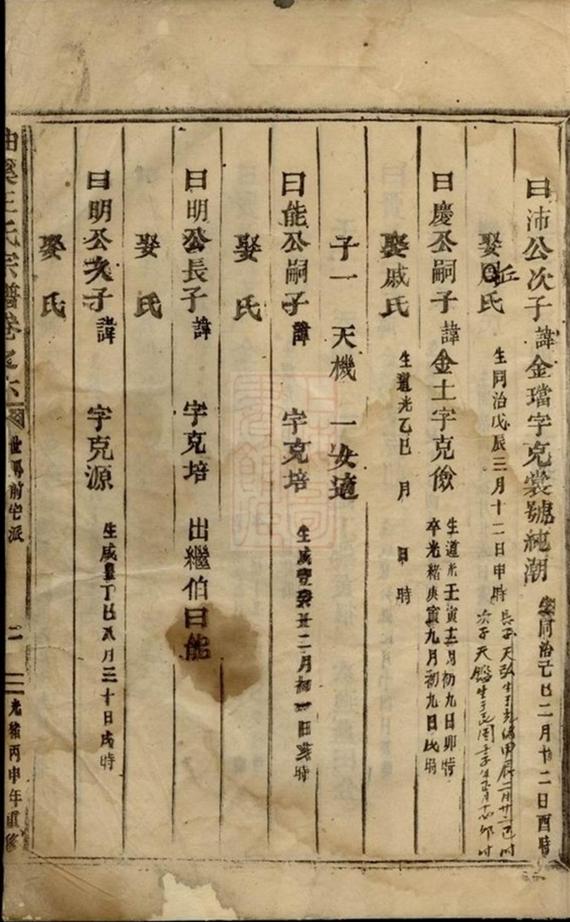 曰沛公次子諱金璫字克裳號純潮
生同治己巳二月十二日酉時
娶丘氏
生同治戊辰三月十二日申時
長子天弘生于光緒甲辰二月廿二巳時
次子天鑑生于民國壬子年
曰慶公嗣子諱金土字克儉
生道光壬寅十二月初九日卯時
卒光緒庚寅九月初九日戌時
娶戚氏
生道光乙巳 月 日 時
子一 天機 一女適
曰能公嗣子諱 字克培
生咸豐癸丑二月初一日亥時
娶 氏
曰明公長子諱 字克培 出繼伯曰能
娶 氏
曰明公次子諱 字克源
生咸豐丁巳八月三十日戌時
娶 氏
王氏宗譜卷之六
世 前宅派
二
光緒丙申年重修